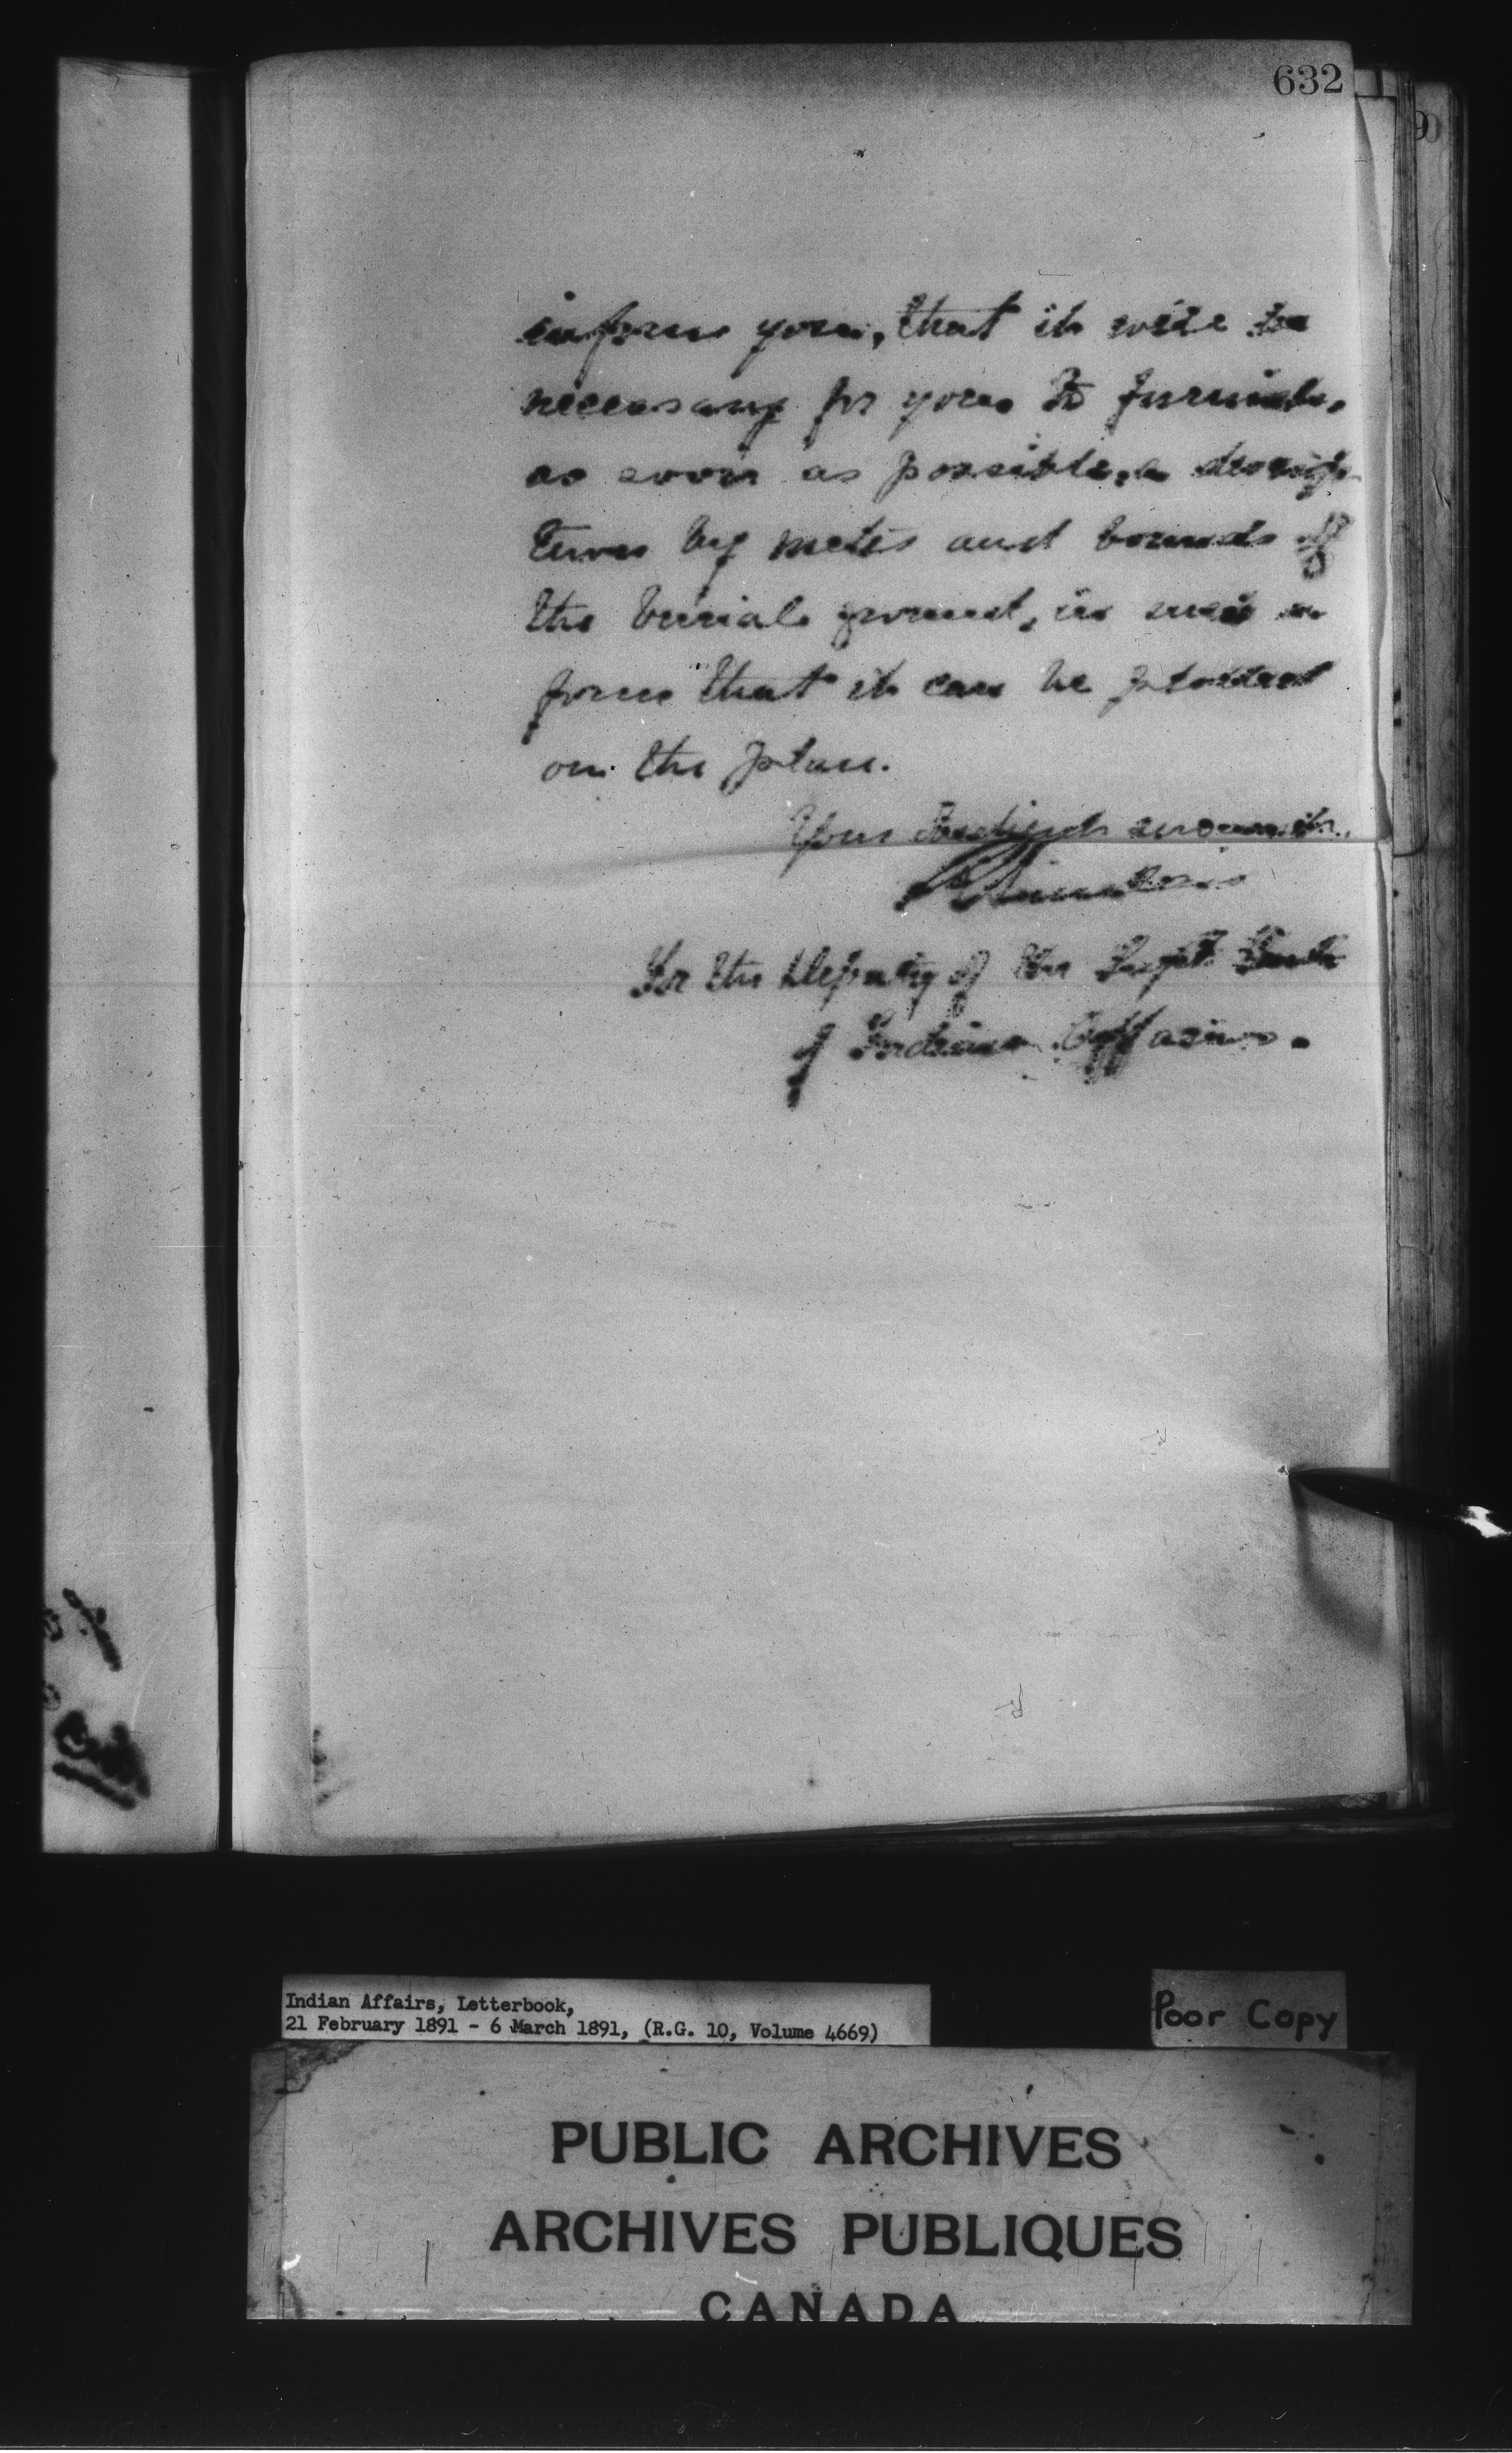 632
inform you, that it will be
necessary for you to furnish,
as soon as possible, a descrip-
tion by metes and bounds of
the burial ground, in such a
form that it can be plotted
on the plan.
Your obedient servant,
For the Deputy of the Supt. Genl.
of Indian Affairs.
Indian Affairs, Letterbook,
21 February 1891 - 6 March 1891, (R.G. 10, Volume 4669)
Poor Copy
PUBLIC ARCHIVES
ARCHIVES PUBLIQUES
CANADA